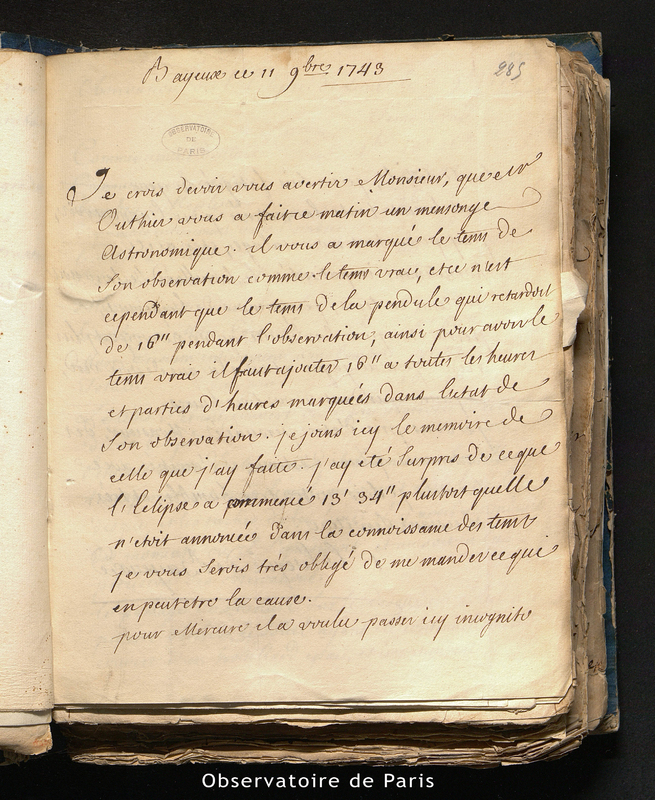 Bayeux ce 11 9bre 1743
285
OBSERVATOIRE
DE
PARIS
Je crois devoir vous avertir Monsieur, que Mr
Outhier vous a fait ce matin un mensonge
Astronomique. il vous a marqué le tems de
son observation comme le tems vrai, et ce n'est
cependant que le tems de la pendule qui retardoit
de 16" pendant l'observation, ainsi pour avoir le
tems vrai il faut ajouter 16" a toutes les heures
et parties d'heures marquées dans l'etat de
son observation. je joins icy le memoire de
celle que j'ay faite. j'ay été surpris de ce que
l'Eclipse a commencé 13' 34" plustost quelle
n'etoit annoncée dans la connoissance des tems
je vous serois trés obligé de me mander ce qui
en peut etre la cause.
pour Mercure il a voulu passer icy incognito
Observatoire de Paris